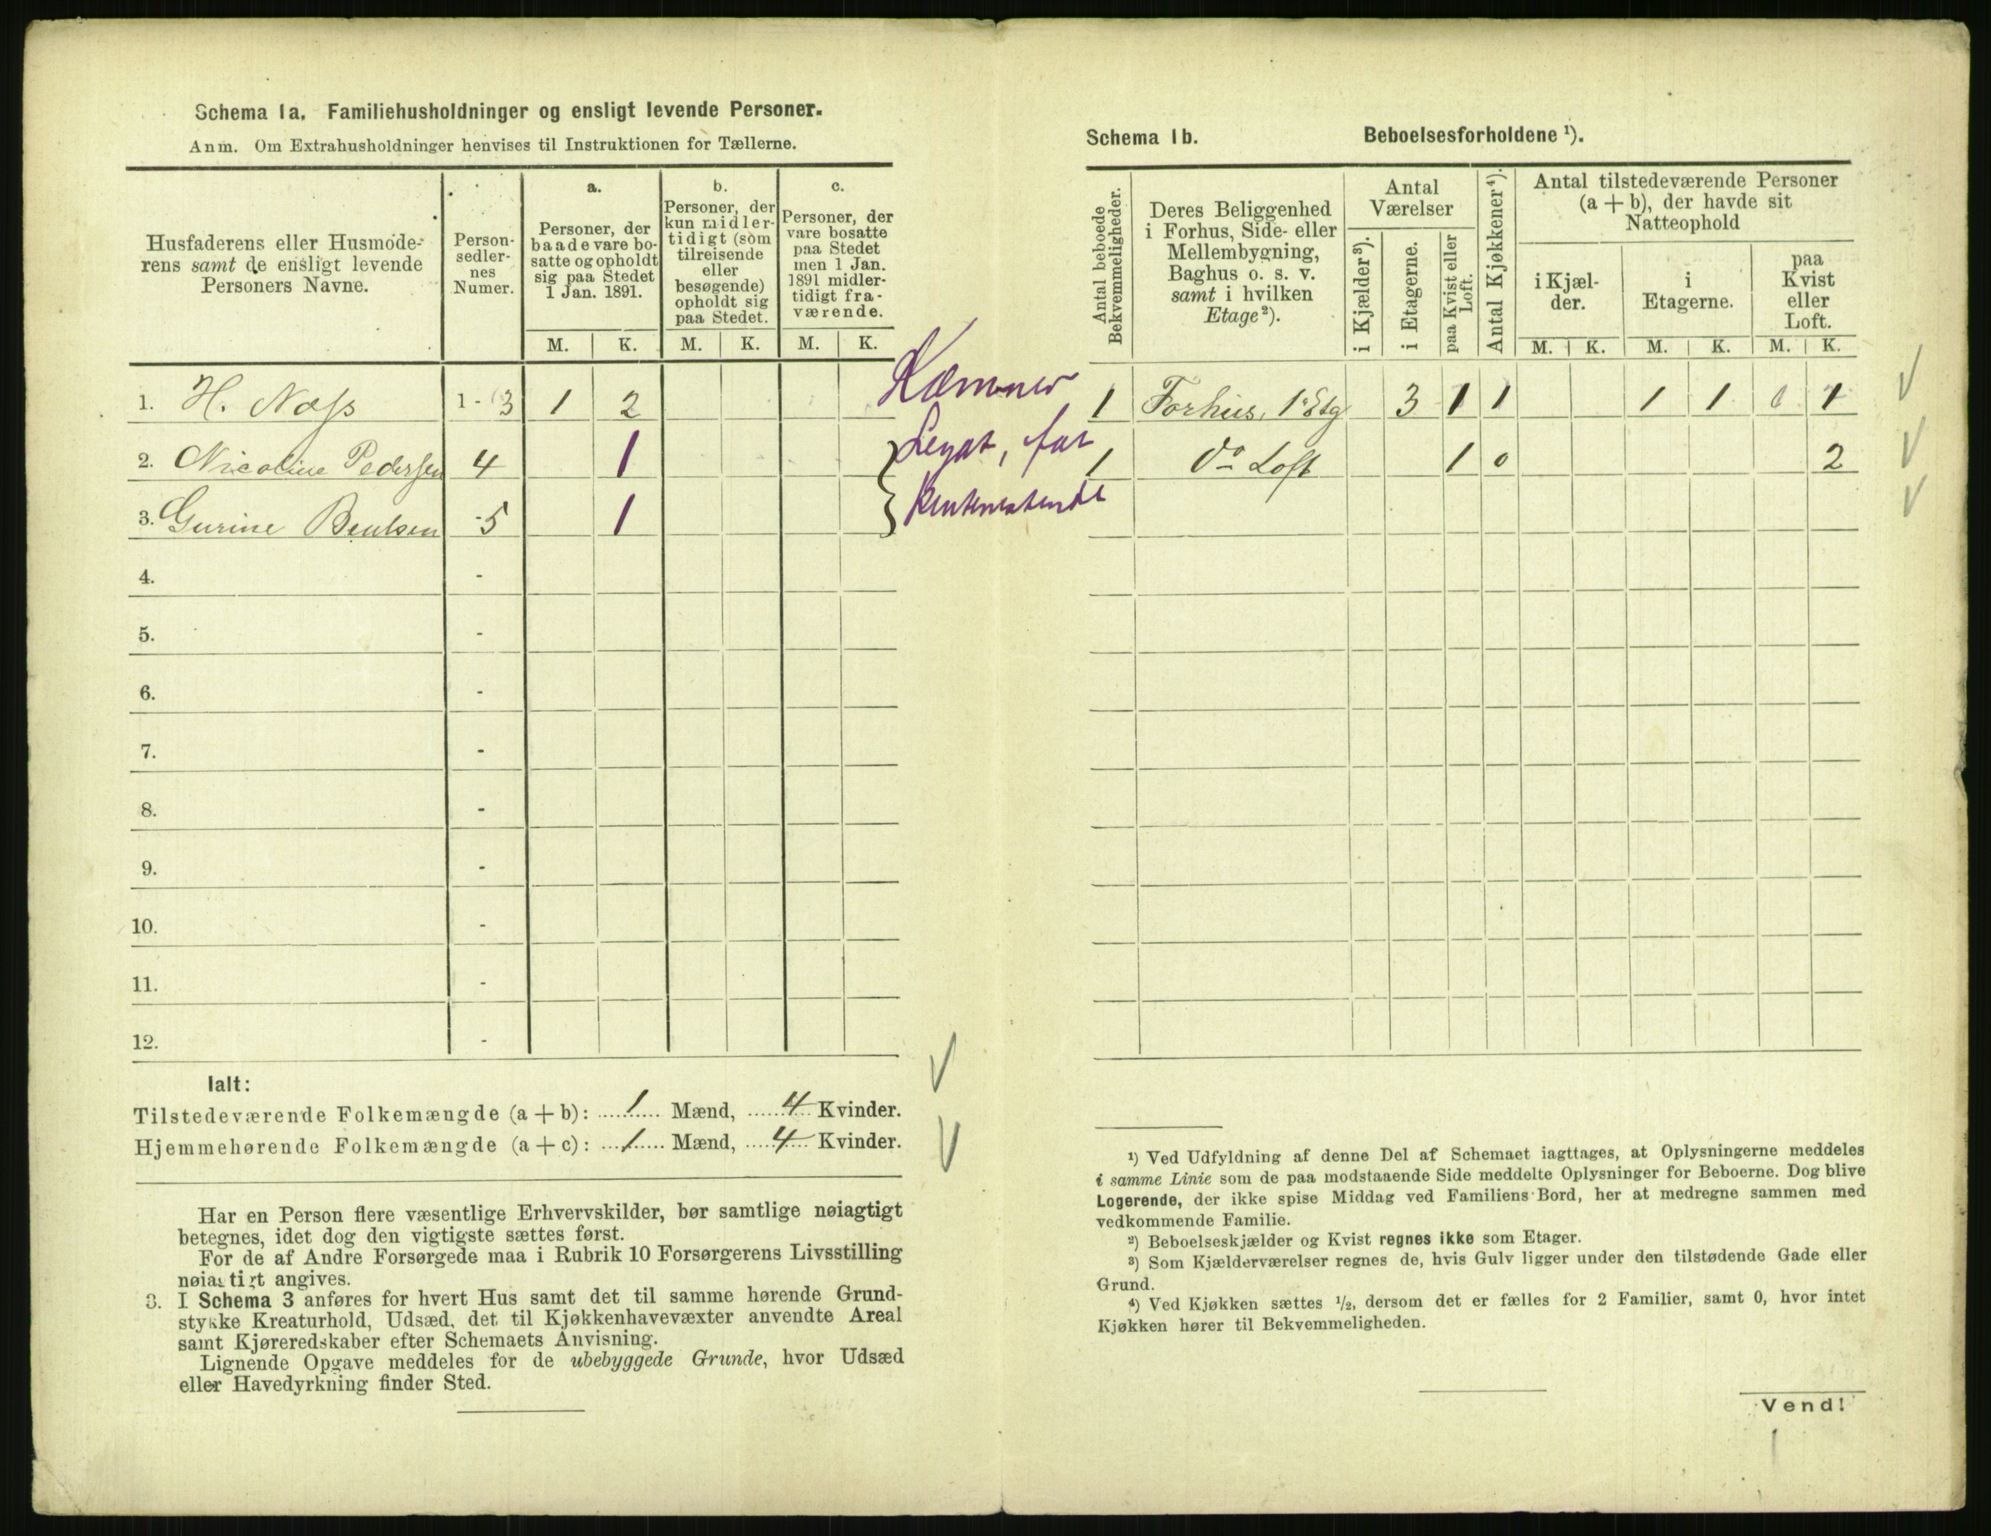 Schema 1a. Familiehusholdninger og ensligt levende Personer.
Anm. Om Extrahusholdninger henvises til Instruktionen for Tællerne.
Husfaderens eller Husmode-
rens samt de ensligt levende
Personers Navne.
Person-
sedler-
nes
Numer.
a.
Personer, der
baade vare bo-
satte og opholdt
sig paa Stedet
1 Jan. 1891.
b.
Personer, der
kun midler-
tidigt (som
tilreisende
eller
besøgende)
opholdt sig
paa Stedet.
c.
Personer, der
vare bosatte
paa Stedet
men 1 Jan.
1891 midler-
tidigt fra-
værende.
M. K. M. K. M. K.
1. H. Næss 1 - 3 1 2 Kæmner
2. Nicoline Pedersen 4 1 Legat, fat
3. Gurine Bentsen - 5 1
4. -
5. -
6. -
7. -
8. -
9. -
10. -
11. -
12. -
Ialt:
Tilstedeværende Folkemængde (a + b): 1 Mænd, 4 Kvinder.
Hjemmehørende Folkemængde (a + c): 1 Mænd, 4 Kvinder.
Har en Person flere væsentlige Erhvervskilder, bør samtlige nøiagtigt
betegnes, idet dog den vigtigste sættes først.
For de af Andre Forsørgede maa i Rubrik 10 Forsørgerens Livsstilling
nøiagtigt angives.
3. I Schema 3 anføres for hvert Hus samt det til samme hørende Grund-
stykke Kreaturhold, Udsæd, det til Kjøkkenhavevæxter anvendte Areal
samt Kjøreredskaber efter Schemaets Anvisning.
Lignende Opgave meddeles for de ubebyggede Grunde, hvor Udsæd
eller Havedyrkning finder Sted.
Schema 1b. Beboelsesforholdene ¹).
Antal beboede
Bekvemmeligheder.
Deres Beliggenhed
i Forhus, Side- eller
Mellembygning,
Baghus o. s. v.
samt i hvilken
Etage²).
Antal
Værelser
i Kjælder³).
i Etagerne.
paa Kvist eller
Loft.
Antal Kjøkkener⁴).
Antal tilstedeværende Personer
(a + b), der havde sit
Natteophold
i Kjæl-
der.
i
Etagerne.
paa
Kvist
eller
Loft.
M. K. M. K. M. K.
1 Forhus, 1 Etg 3 1 1 1 1 0 1
1 do Loft 1 0 2
¹) Ved Udfyldning af denne Del af Schemaet iagttages, at Oplysningerne meddeles
i samme Linie som de paa modstaaende Side meddelte Oplysninger for Beboerne. Dog blive
Logerende, der ikke spise Middag ved Familiens Bord, her at medregne sammen med
vedkommende Familie.
²) Beboelseskjælder og Kvist regnes ikke som Etager.
³) Som Kjælderværelser regnes de, hvis Gulv ligger under den tilstødende Gade eller
Grund.
⁴) Ved Kjøkken sættes ½, dersom det er fælles for 2 Familier, samt 0, hvor intet
Kjøkken hører til Bekvemmeligheden.
Vend!